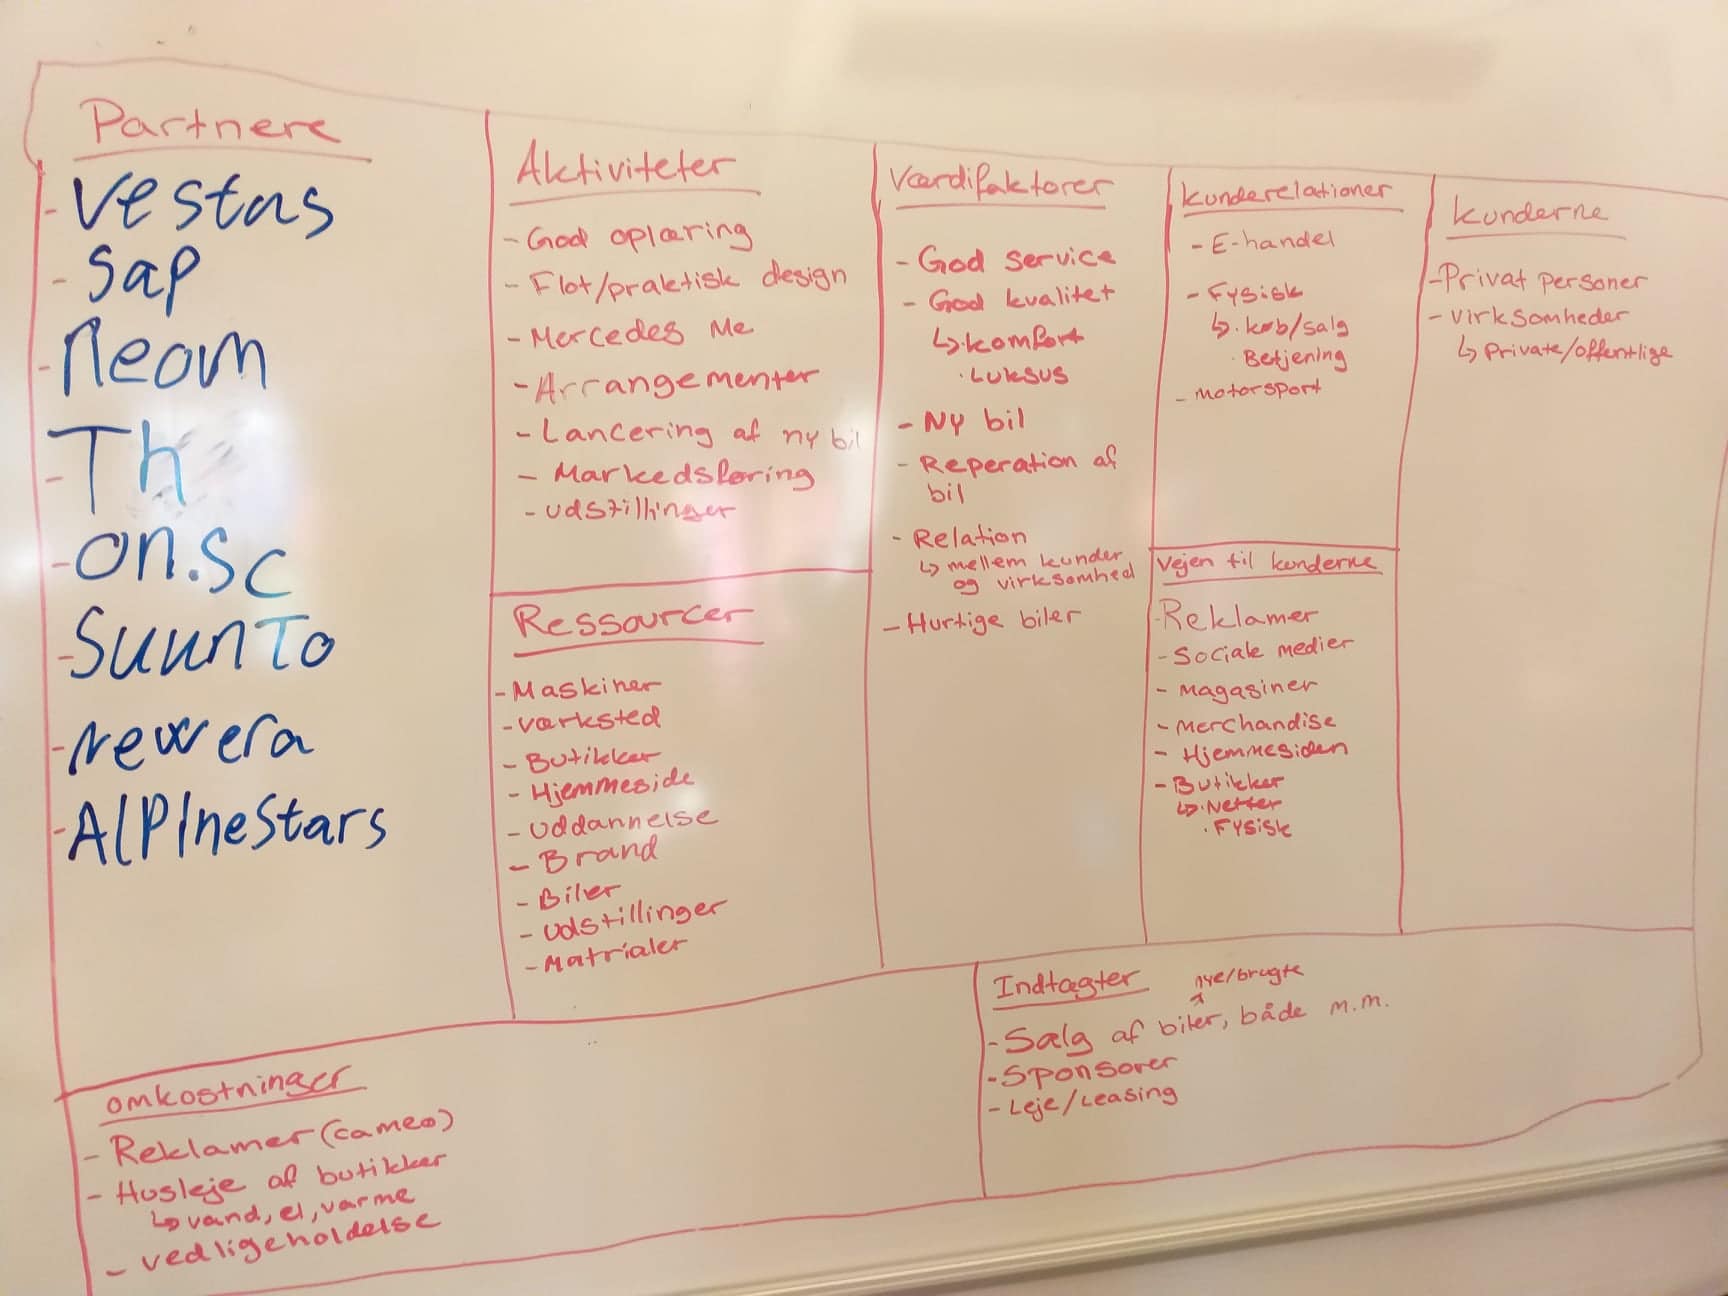 Partnere
- Vestas
- Sap
- Neom
- Th
- on.sc
- SuunTo
- New era
- AlPIneStars
Aktiviteter
- God oplæring
- Flot/praktisk design
- Mercedes Me
- Arrangementer
- Lancering af ny bil
- Markedsføring
- udstillinger
Ressourcer
- Maskiner
- værksted
- Butikker
- Hjemmeside
- Uddannelse
- Brand
- Biler
- udstillinger
- Matrialer
Værdifaktorer
- God service
- God kvalitet
↳ · komfort
· Luksus
- Ny bil
- Reperation af
bil
- Relation
↳ mellem kunder
og virksomhed
- Hurtige biler
kunderelationer
- E-handel
- Fysisk
↳ · køb/salg
· Betjening
- motorsport
Vejen til kunderne
- Reklamer
- Sociale medier
- Magasiner
- Merchandise
- Hjemmesiden
- Butikker
↳ · Netter
· Fysisk
kunderne
- Privat personer
- virksomheder
↳ Private/offentlige
omkostninger
- Reklamer (cameo)
- Husleje af butikker
↳ vand, el, varme
- vedligeholdelse
Indtægter
nye/brugte
- Salg af biler, både m.m.
- Sponsorer
- Leje/Leasing